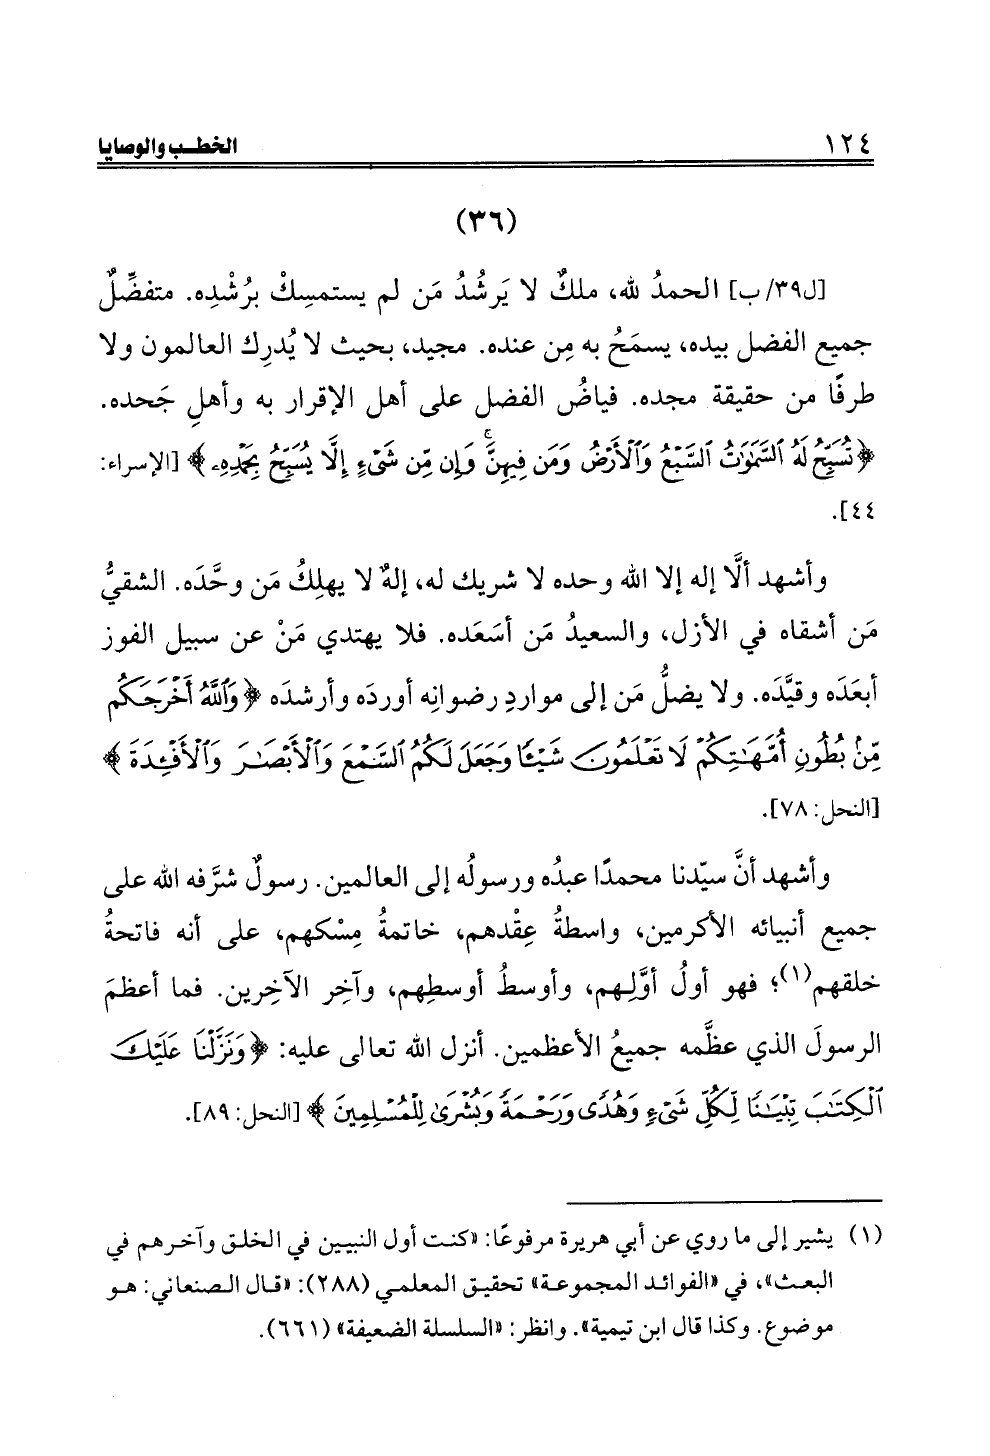 ١٢٤ الخطب والوصايا
(٣٦)
[ل٣٩/ب] الحمدُ لله، ملكٌ لا يَرشُدُ مَن لم يستمسِكْ برُشْدِه. متفضِّلٌ
جميع الفضل بيده، يسمَحُ به مِن عنده. مجيد، بحيث لا يُدرِك العالمون ولا
طرفًا من حقيقة مجده. فياضُ الفضل على أهل الإقرار به وأهلِ جَحده.
﴿تُسَبِّحُ لَهُ ٱلسَّمَٰوَٰتُ ٱلسَّبْعُ وَٱلْأَرْضُ وَمَن فِيهِنَّۚ وَإِن مِّن شَىْءٍ إِلَّا يُسَبِّحُ بِحَمْدِهِۦ﴾ [الإسراء:
٤٤].
وأشهد ألَّا إله إلا الله وحده لا شريك له، إلهٌ لا يهلِكُ مَن وحَّدَه. الشقيُّ
مَن أشقاه في الأزل، والسعيدُ مَن أسَعَده. فلا يهتدي مَنْ عن سبيل الفوز
أبعَدَه وقيَّدَه. ولا يضلُّ مَن إلى مواردِ رضوانِه أوردَه وأرشدَه ﴿وَٱللَّهُ أَخْرَجَكُم
مِّنۢ بُطُونِ أُمَّهَٰتِكُمْ لَا تَعْلَمُونَ شَيْـًٔا وَجَعَلَ لَكُمُ ٱلسَّمْعَ وَٱلْأَبْصَٰرَ وَٱلْأَفْـِٔدَةَ﴾
[النحل: ٧٨].
وأشهد أنَّ سيّدنا محمدًا عبدُه ورسولُه إلى العالمين. رسولٌ شرَّفه الله على
جميع أنبيائه الأكرمين، واسطةُ عِقْدهم، خاتمةُ مِسْكهم، على أنه فاتحةُ
خلقهم(١)؛ فهو أولُ أوَّلِهم، وأوسطُ أوسطِهم، وآخِر الآخِرين. فما أعظمَ
الرسولَ الذي عظَّمه جميعُ الأعظمين. أنزل الله تعالى عليه: ﴿وَنَزَّلْنَا عَلَيْكَ
ٱلْكِتَٰبَ تِبْيَٰنًا لِّكُلِّ شَىْءٍ وَهُدًى وَرَحْمَةً وَبُشْرَىٰ لِلْمُسْلِمِينَ﴾ [النحل: ٨٩].
(١) يشير إلى ما روي عن أبي هريرة مرفوعًا: «كنت أول النبيين في الخلق وآخرهم في
البعث»، في «الفوائد المجموعة» تحقيق المعلمي (٢٨٨): «قال الصنعاني: هو
موضوع. وكذا قال ابن تيمية». وانظر: «السلسلة الضعيفة» (٦٦١).